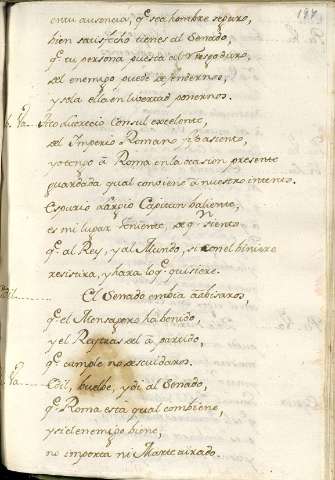 en tu ausencia, q.e sea hombre seguro,
bien satisfecho tienes al Senado,
q.e tu persona puesta al riesgo duro,
del enemigo puede defendernos,
y sola ella en libertad ponernos.
A tu discrecio Consul excelente,
del Imperio Romano
yo tengo â Roma en la ocasion presente
guardada qual conviene â nuestro intento.
Espurio Largio Capitan baliente,
es mi lugar teniente, de q.n siento
q.e al Rey, y al Mundo, si con el biniere
resistira, y hara lo q.e quisiere.
El Senado embia âbisaros,
q.e el Mensagero ha benido,
y el Rey tras del â partido,
q.e cumple no descuidaros.
Edil, buelbe, y di al Senado,
q.e Roma está qual combiene,
y si el enemigo biene,
no importa ni Marte airado.